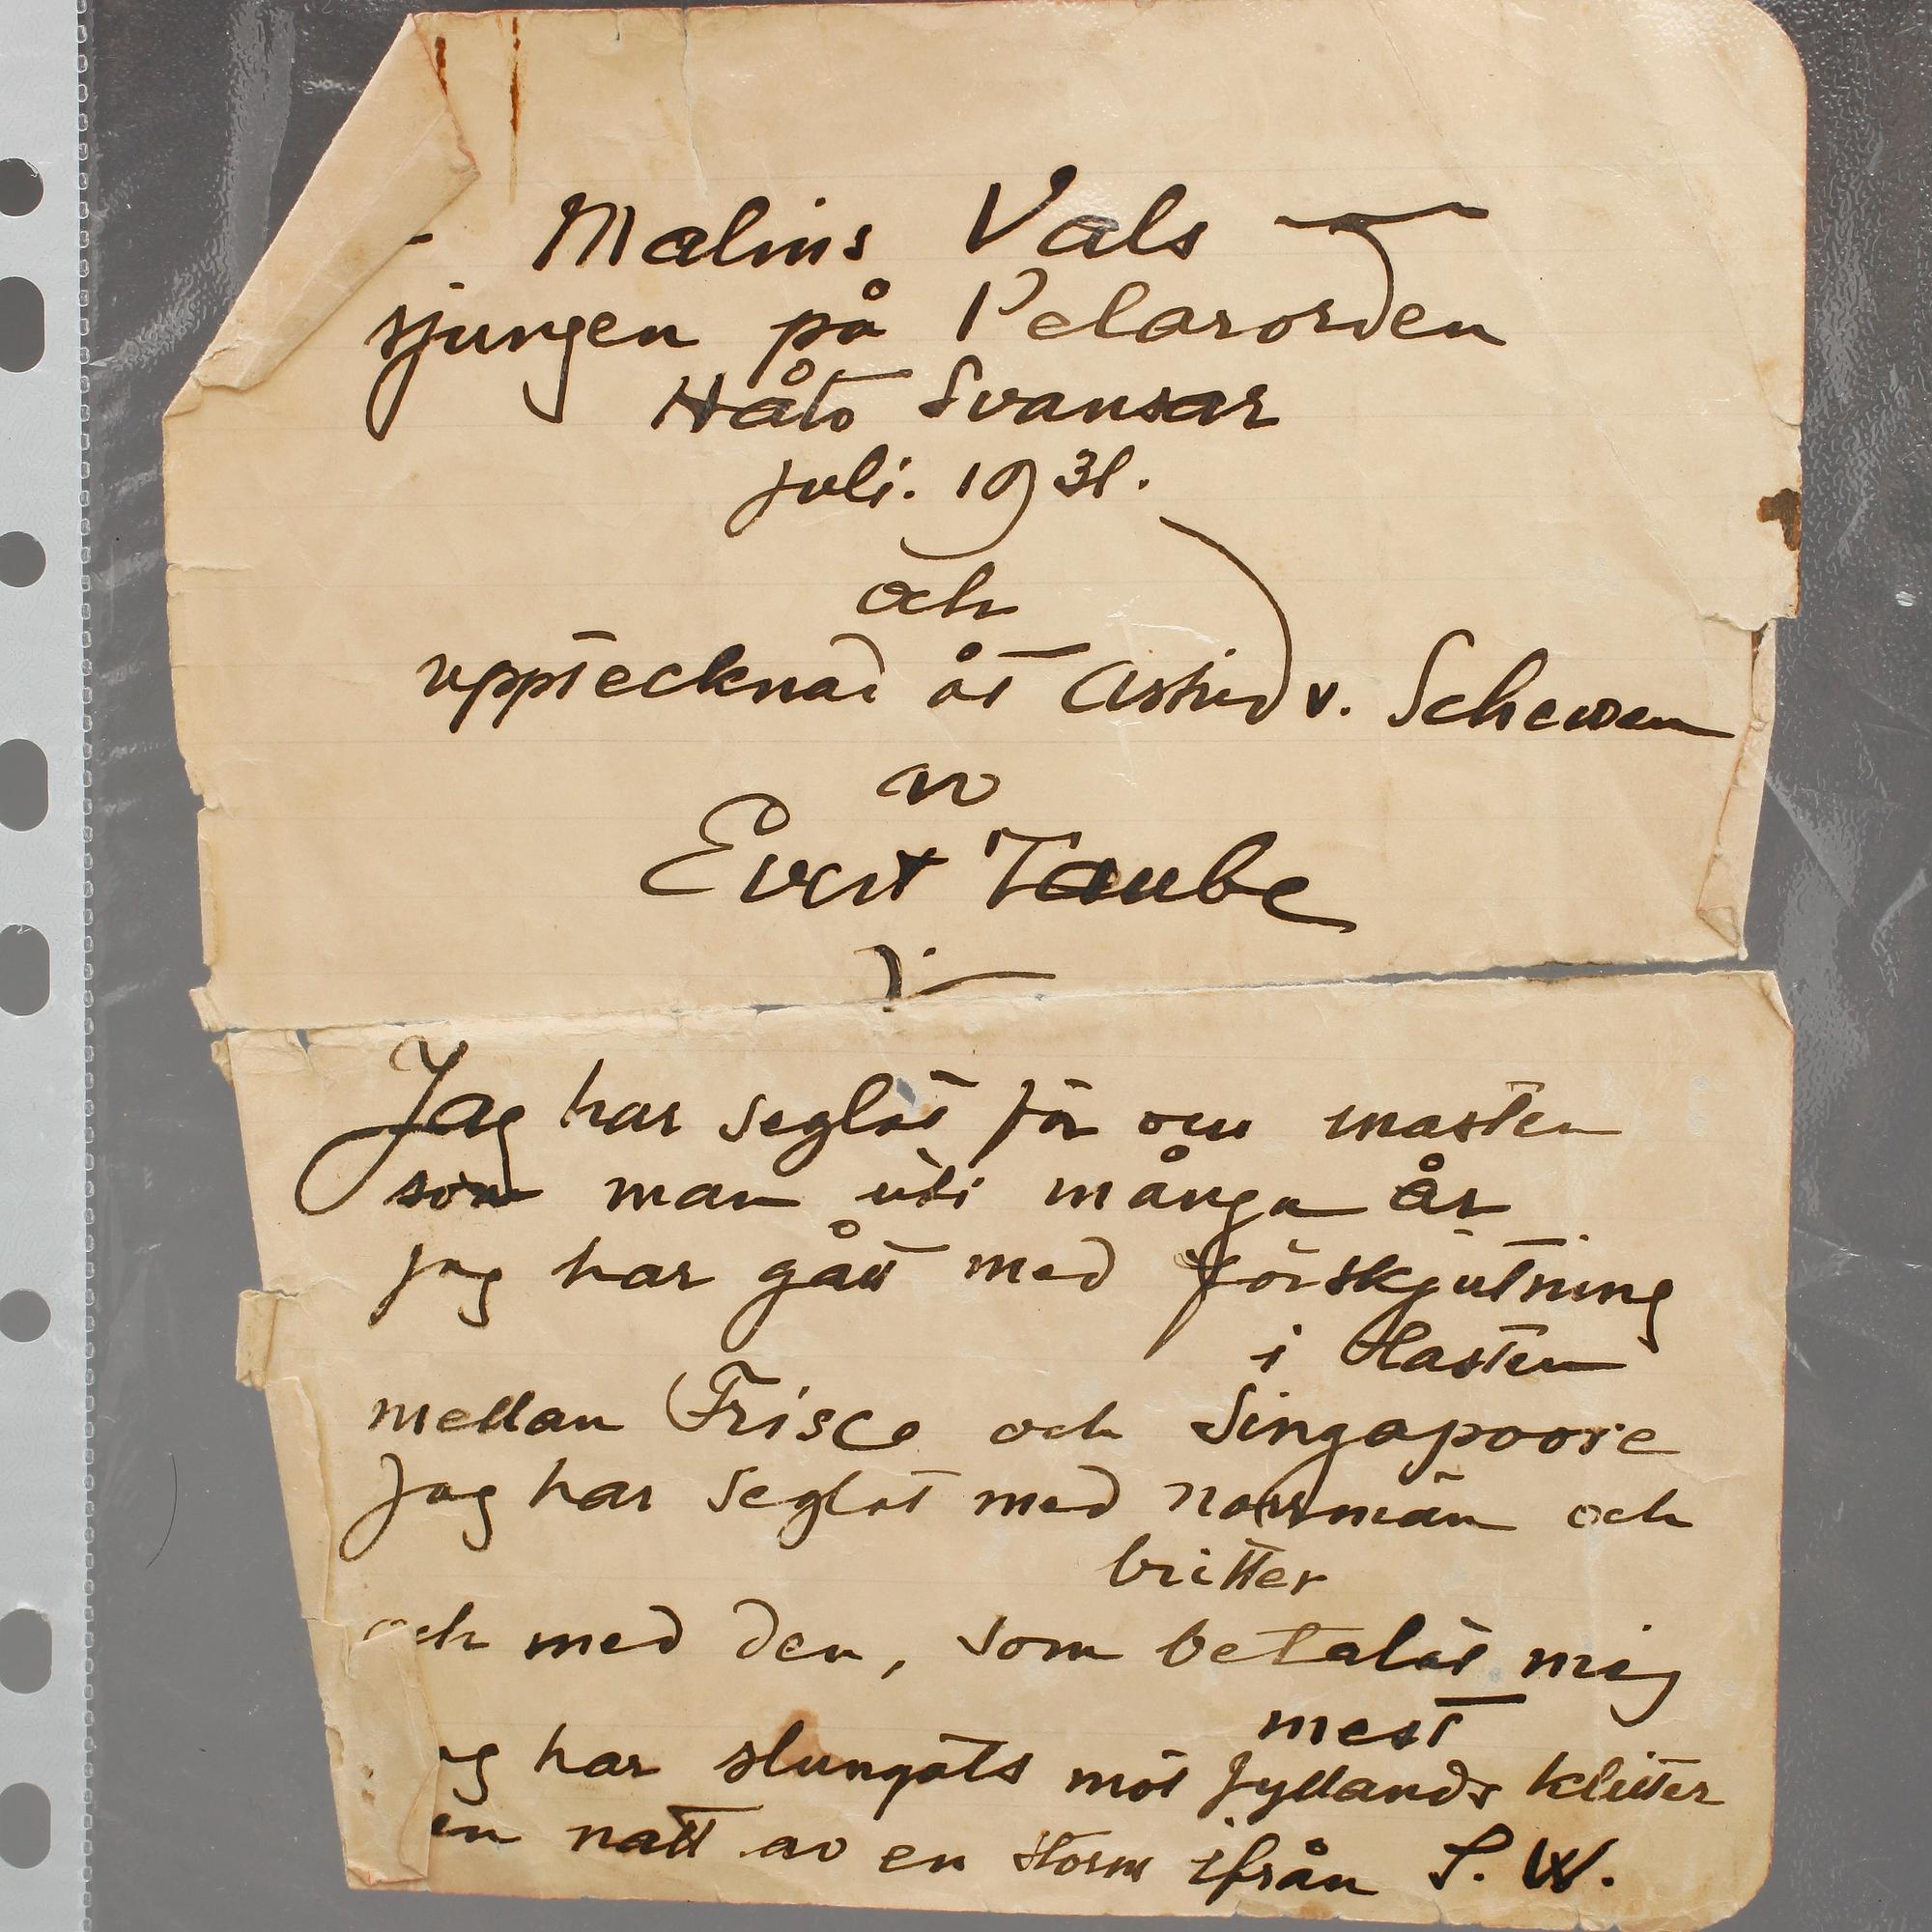 Malins Vals
sjungen på Pelarorden
Håtö Svansar
juli. 1931.
och
upptecknad åt Astrid v. Schewen
av
Evert Taube
Jag har seglat för om masten
som man uti många år
jag har gått med förskjutning
i lasten
mellan Frisco och Singapoore
Jag har seglat med norrmän och
britter
och med den, som betalat mig
mest
ag har slungats mot Jyllands klitter
en natt av en storm ifrån S. W.